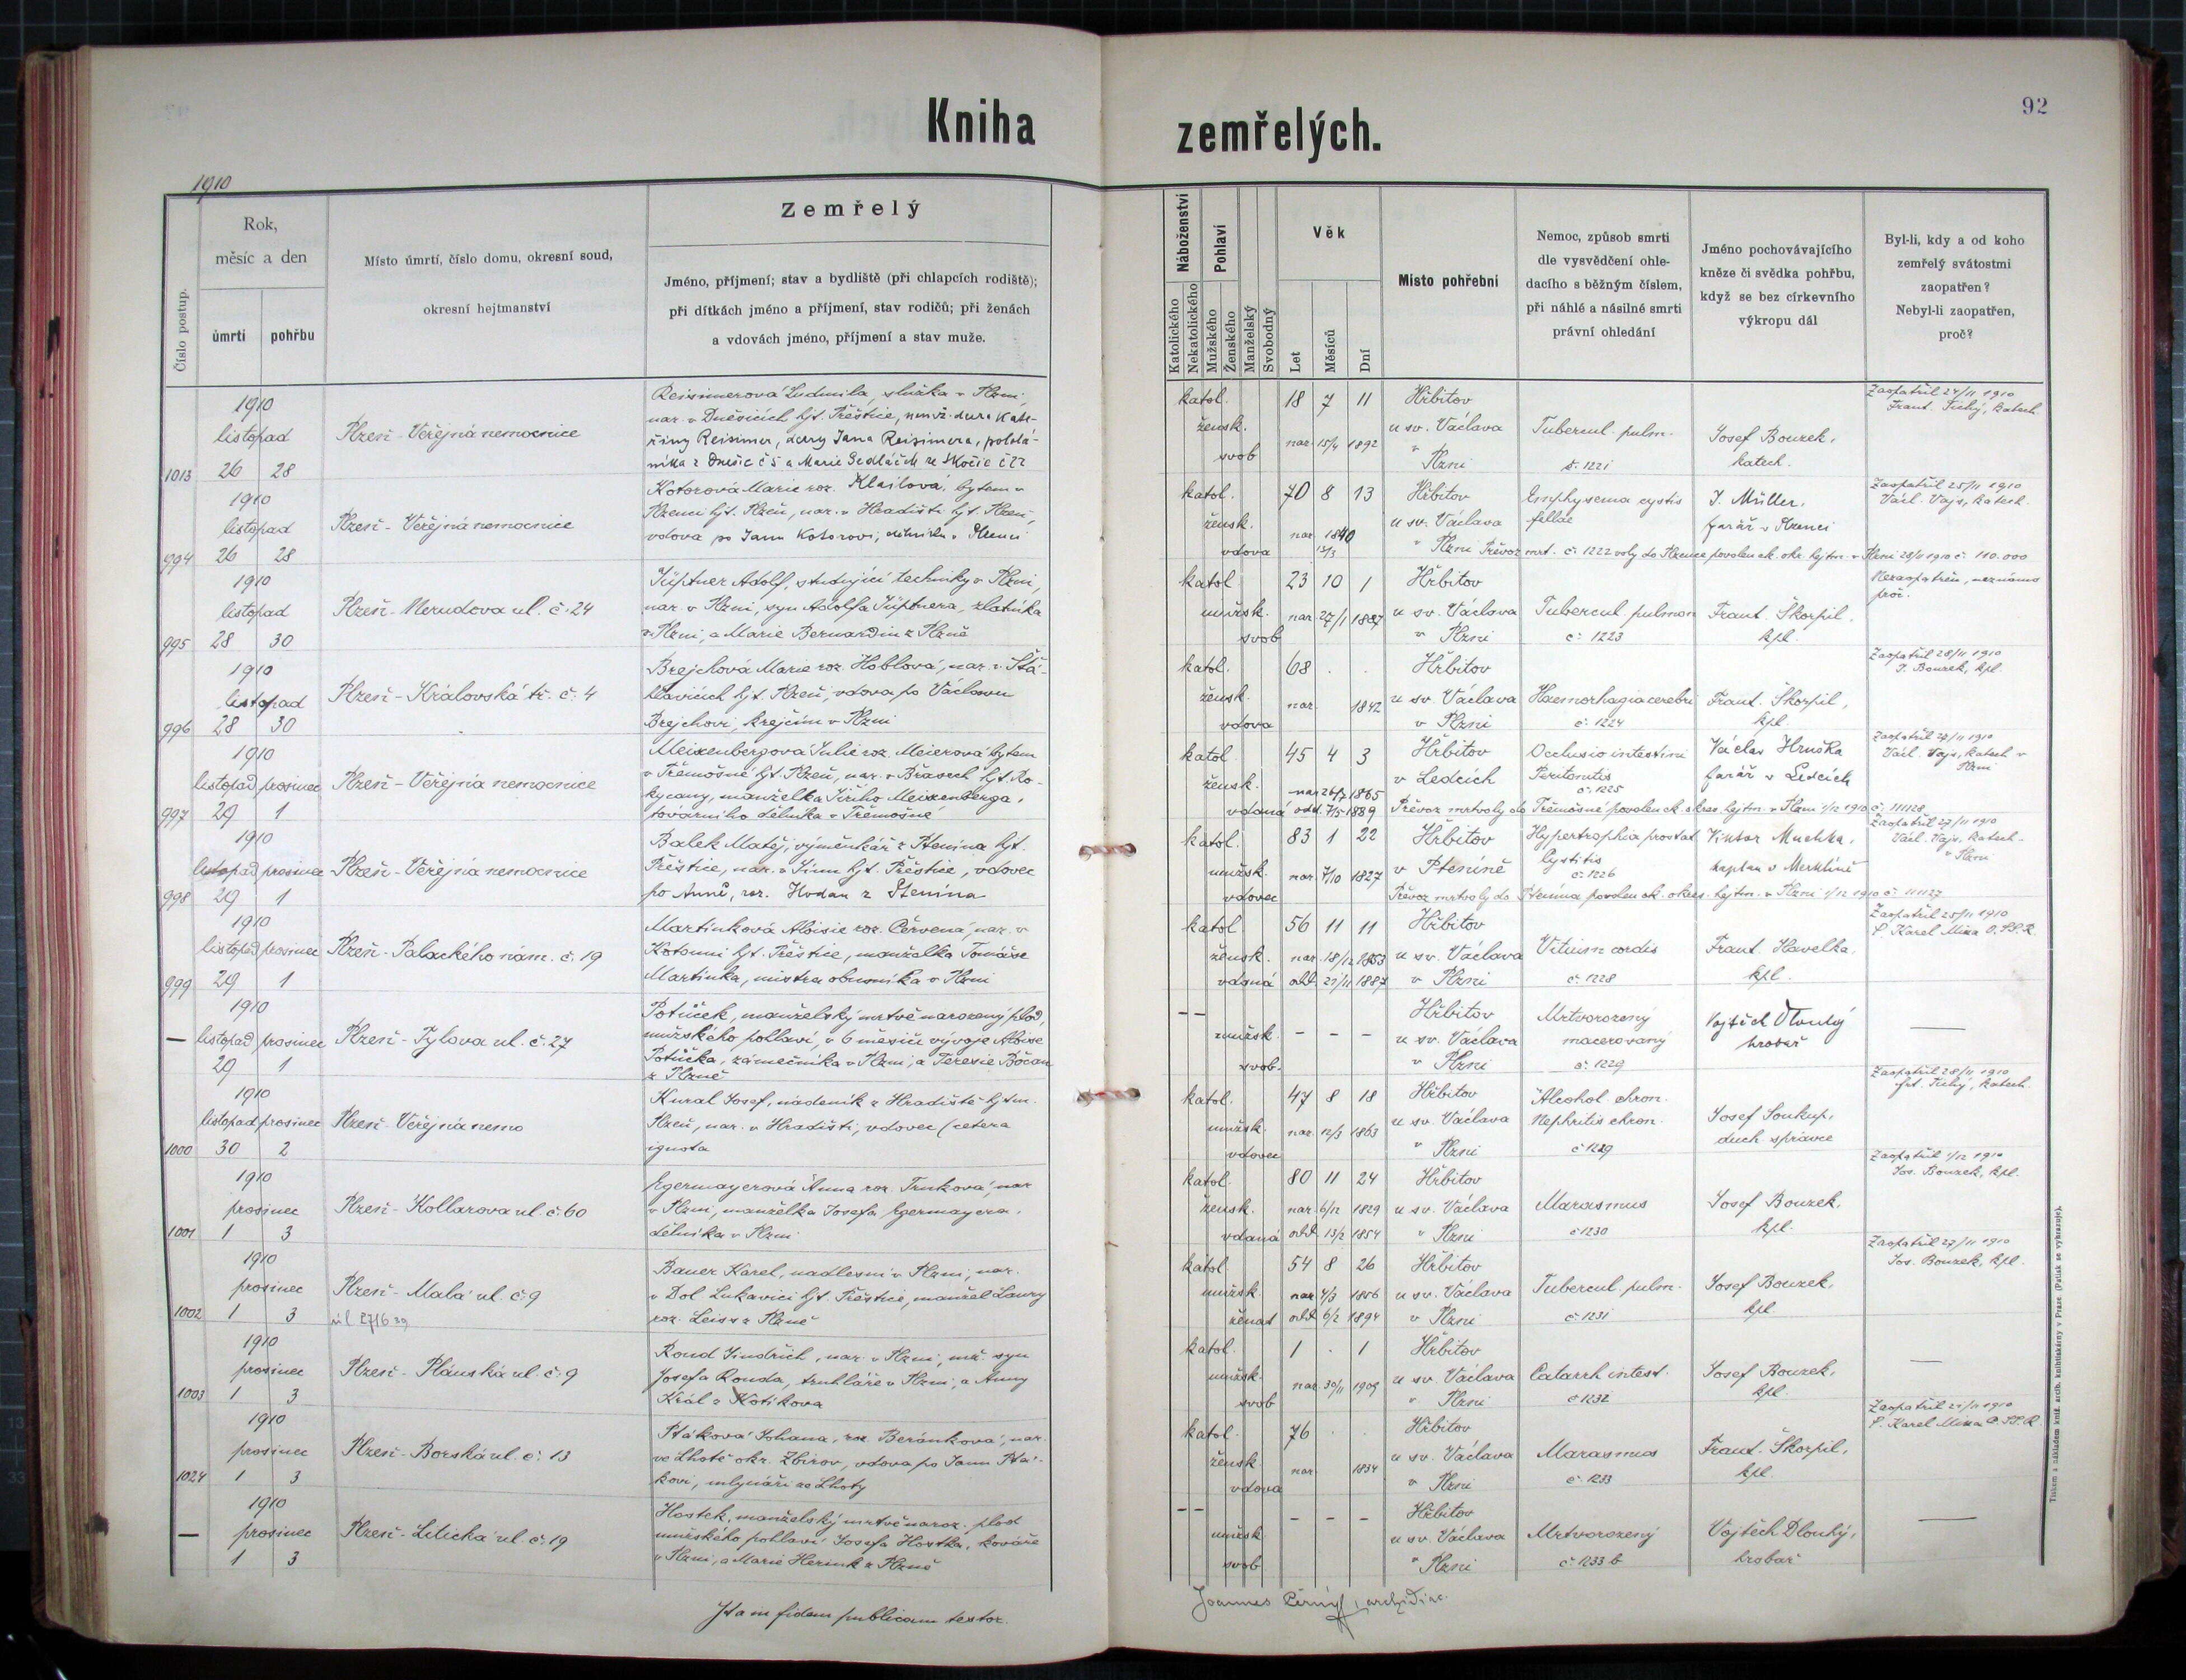 Kniha zemřelých.
92
1910
Číslo postup.
Rok,
měsíc a den
úmrtí
pohřbu
Místo úmrtí, číslo domu, okresní soud,
okresní hejtmanství
Zemřelý
Jméno, příjmení; stav a bydliště (při chlapcích rodiště);
při dítkách jméno a příjmení, stav rodičů; při ženách
a vdovách jméno, příjmení a stav muže.
Náboženství
Katolického
Nekatolického
Pohlaví
Mužského
Ženského
Manželský
Svobodný
Věk
Let
Měsíců
Dní
Místo pohřební
Nemoc, způsob smrti
dle vysvědčení ohle-
dacího s běžným číslem,
při náhlé a násilné smrti
právní ohledání
Jméno pochovávajícího
kněze či svědka pohřbu,
když se bez církevního
výkropu dál
Byl-li, kdy a od koho
zemřelý svátostmi
zaopatřen?
Nebyl-li zaopatřen,
proč?
1910
listopad
1013 26 28
Plzeň - Veřejná nemocnice
Reisimerová Ludmila, služka v Plzni,
nar. v Dnešicích hjt. Přeštice, nemž. dcera Kate-
řiny Reisimer, dcery Jana Reisimera, polelá-
níka z Dnešic č 5 a Marie Sedláček ze Skočic č 22
katol. 18 7 11
žensk. nar. 15/4 1892
svob
Hřbitov
u sv. Václava
v Plzni
Tubercul. pulm.
č. 1221
Josef Bouzek,
katech.
Zaopatřil 24/11 1910
Frant. Tichý, katech.
1910
listopad
994 26 28
Plzeň - Veřejná nemocnice
Kotorová Marie roz. Klailová, bytem v
Plzenci hjt. Plzeň, nar. v Hradišti hjt. Plzeň,
vdova po Janu Kotorovi, dělníku v Plzenci
katol. 70 8 13
žensk. nar. 1840
vdova 13/3
Hřbitov
u sv. Václava
v Plzni Převoz mrt. č. 1222 voly do Plzence povolen ck. okr. hejtm. v Plzni 28/11 1910 č. 110.000
Emphysema cystis
felláe
J. Müller,
farář v Plzenci
Zaopatřil 25/11 1910
Václ. Vajs, katech.
1910
listopad
995 28 30
Plzeň - Nerudova ul. č. 24
Jüptner Adolf, studující techniky v Plzni,
nar. v Plzni, syn Adolfa Jüptnera, zlatníka
v Plzni, a Marie Bernardin z Plzně
katol 23 10 1
mužsk. nar. 27/1 1887
svob
Hřbitov
u sv. Václava
v Plzni
Tubercul. pulmon
č. 1223
Frant. Škorpil,
kpl.
Nezaopatřen, neznámo
proč.
1910
listopad
996 28 30
Plzeň - Královská tř. č. 4
Brejchová Marie roz. Hoblová, nar. v Štá-
hlavicích hjt. Plzeň, vdova po Václavu
Brejchovi, krejčím v Plzni
katol. 68 . .
žensk. nar. 1842
vdova
Hřbitov
u sv. Václava
v Plzni
Haemorhagia cerebri
č. 1224
Frant. Škorpil,
kpl.
Zaopatřil 28/11 1910
J. Bouzek, kpl.
1910
listopad prosinec
997 29 1
Plzeň - Veřejná nemocnice
Meixenbergová Julie roz. Meierová bytem
v Třemošné hjt. Plzeň, nar. v Břasech hjt. Ro-
kycany, manželka Jiřího Meixenberga,
továrního dělníka v Třemošné
katol. 45 4 3
žensk. nar 26/7 1865
vdaná odd. 7/5 1889
Hřbitov
v Ledcích
Převoz mrtvoly do Třemošné povolen ck. okres. hejtm. v Plzni 1/12 1910 č. 111128
Occlusio intestini
Peritonitis
č. 1225
Václav Hruška
farář v Ledcích
Zaopatřil 27/11 1910
Václ. Vajs, katech v
Plzni
1910
listopad prosinec
998 29 1
Plzeň - Veřejná nemocnice
Balek Matěj, výměnkář z Ptenína hjt.
Přeštice, nar. v Jinu hjt. Přeštice, vdovec
po Anně, roz. Hodan z Ptenína
katol. 83 1 22
mužsk. nar. 7/10 1827
vdovec
Hřbitov
v Pteníně
Převoz mrtvoly do Ptenína povolen ck. okres. hejtm. v Plzni 1/12 1910 č. 111127
Hypertrophia prostat
Cystitis
č. 1226
Viktor Muchka,
kaplan v Merklíně
Zaopatřil 27/11 1910
Václ. Vajs, katech-
v Plzni
1910
listopad prosinec
999 29 1
Plzeň - Palackého nám. č. 19
Martínková Aloisie roz. Červená, nar. v
Kotouni hjt. Přeštice, manželka Tomáše
Martínka, mistra obuvníka v Plzni
katol 56 11 11
žensk. nar. 18/12 1853
vdaná odd. 21/11 1887
Hřbitov
u sv. Václava
v Plzni
Vitium cordis
č. 1228
Frant. Havelka,
kpl.
Zaopatřil 25/11 1910
P. Karel Mixa O. SS. R.
1910
— listopad prosinec
29 1
Plzeň - Tylova ul. č. 27
Potůček, manželský mrtvě narozený plod,
mužského pohlaví, v 6 měsíci vývoje Aloise
Potůčka, zámečníka v Plzni, a Teresie Bočan
z Plzně
- - - - -
mužsk.
svob.
Hřbitov
u sv. Václava
v Plzni
Mrtvorozený
macerovaný
č. 1229
Vojtěch Dlouhý
hrobař
—
1910
listopad prosinec
1000 30 2
Plzeň - Veřejná nemo
Kural Josef, nadeník z Hradiště hjtm.
Plzeň, nar. v Hradišti, vdovec (cetera
ignota
katol. 47 8 18
mužsk. nar. 12/3 1863
vdovec
Hřbitov
u sv. Václava
v Plzni
Alcohol chron.
Nephritis chron.
č 1229
Josef Soukup,
duch správce
Zaopatřil 28/11 1910
frt. Tichý, katech.
1910
prosinec
1001 1 3
Plzeň - Kollarova ul. č 60
Egermayerová Anna roz. Trnková, nar
v Plzni, manželka Josefa Egermayera,
dělníka v Plzni
katol. 80 11 24
žensk. nar. 6/12 1829
vdaná odd. 13/2 1854
Hřbitov
u sv. Václava
v Plzni
Marasmus
č 1230
Josef Bouzek,
kpl.
Zaopatřil 1/12 1910
Jos. Bouzek, kpl.
1910
prosinec
1002 1 3
Plzeň - Malá ul. č. 9
Bauer Karel, nadlesní v Plzni, nar.
v Dol. Lukavici hjt. Přeštice, manžel Laury
roz. Leiss z Plzně
katol 54 8 26
mužsk. nar 4/3 1856
ženat odd 6/2 1894
Hřbitov
u sv. Václava
v Plzni
Tubercul. pulm.
č. 1231
Josef Bouzek,
kpl
Zaopatřil 27/11 1910
Jos. Bouzek, kpl.
1910
prosinec
1003 1 3
Plzeň - Plánská ul. č. 9
Roud Jindřich, nar. v Plzni, mž. syn
Josefa Rouda, truhláře v Plzni, a Anny
Král z Kotíkova
katol. 1 . 1
mužsk. nar. 30/11 1909
svob
Hřbitov
u sv. Václava
v Plzni
Catarrh intest.
č 1232
Josef Bouzek,
kpl.
—
1910
prosinec
1024 1 3
Plzeň - Borská ul. č. 13
Ptáková Johana, roz Beránková, nar.
ve Lhotě okr. Zbirov, vdova po Janu Ptá-
kovi, mlynáři ze Lhoty
katol. 76 . .
žensk. nar. 1834
vdova
Hřbitov
u sv. Václava
v Plzni
Marasmus
č. 1233
Frant. Škorpil,
kpl.
Zaopatřil 21/11 1910
P. Karel Mixa O. SS. R
1910
— prosinec
1 3
Plzeň - Litická ul. č. 19
Hostek, manželský mrtvě naroz. plod
mužského pohlaví Josefa Hostka, kováře
v Plzni, a Marie Herink z Plzně
- - - - -
mužsk
svob
Hřbitov
u sv. Václava
v Plzni
Mrtvorozený
č. 1233 b
Vojtěch Dlouhý,
hrobař
—
Ita in fidem publicam testor.
Joannes Černý, archidiac.
Tiskem a nákladem kníž. arcib. knihtiskárny v Praze. (Patisk se vyhrazuje).